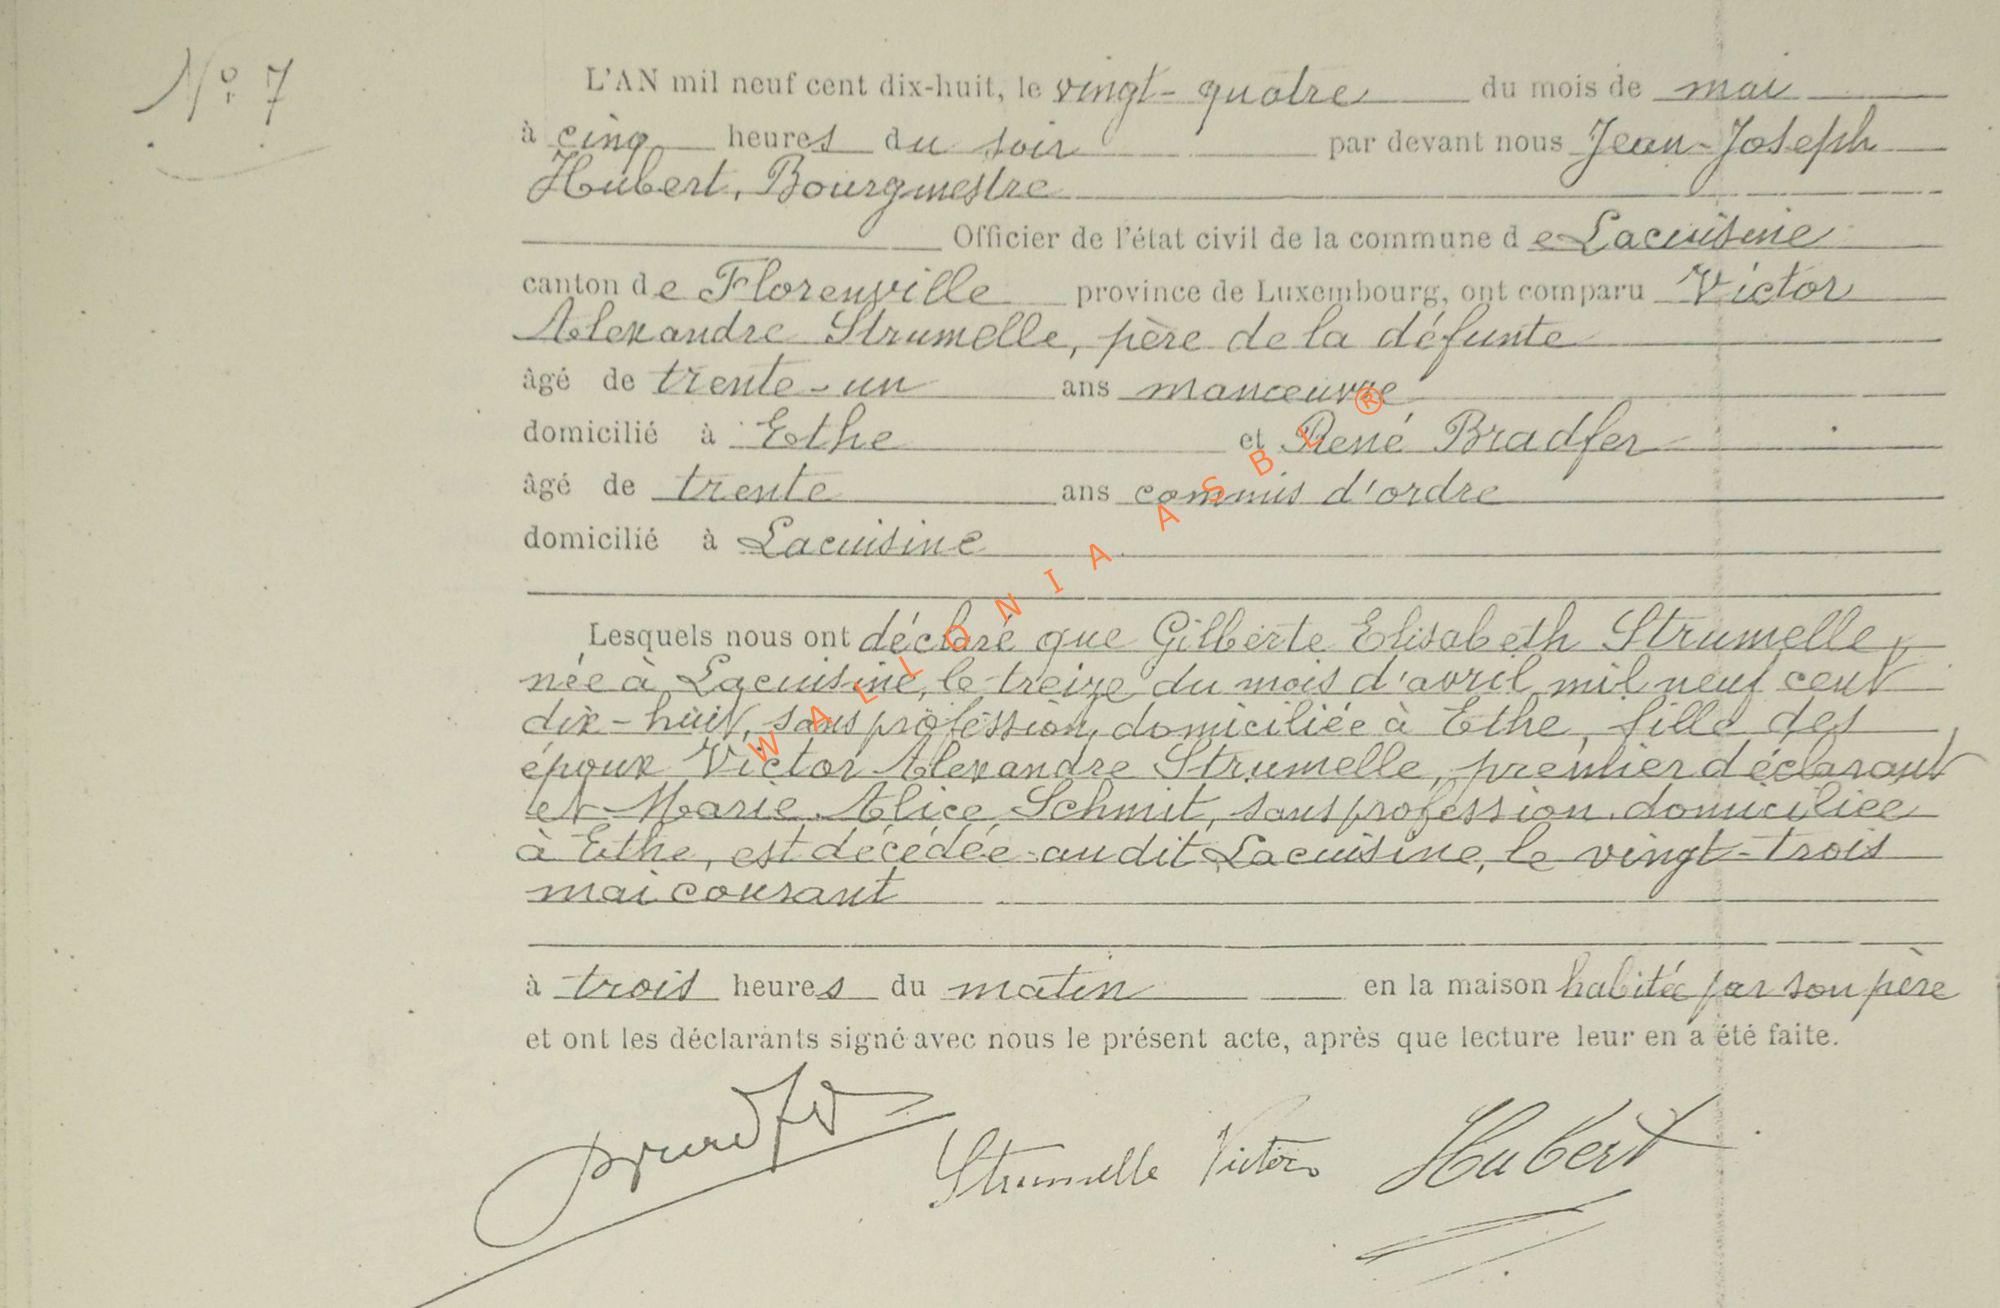 N° 7
L'AN mil neuf cent dix-huit, le vingt-quatre du mois de mai
à cinq heures du soir par devant nous Jean-Joseph
Hubert, Bourgmestre
Officier de l'état civil de la commune de Lacuisine
canton de Florenville province de Luxembourg, ont comparu Victor
Alexandre Strumelle, père de la défunte
âgé de trente-un ans manœuvre
domicilié à Ethe et René Bradfer
âgé de trente ans commis d'ordre
domicilié à Lacuisine
Lesquels nous ont déclaré que Gilberte Elisabeth Strumelle,
née à Lacuisine, le treize du mois d'avril mil neuf cent
dix-huit, sans profession, domiciliée à Ethe, fille des
époux Victor Alexandre Strumelle, premier déclarant
et Marie Alice Schmit, sans profession, domiciliée
à Ethe, est décédée audit Lacuisine, le vingt-trois
mai courant
à trois heures du matin en la maison habitée par son père
et ont les déclarants signé avec nous le présent acte, après que lecture leur en a été faite.
Bradfer Strumelle Victor Hubert
WALLONIA ASBL ®